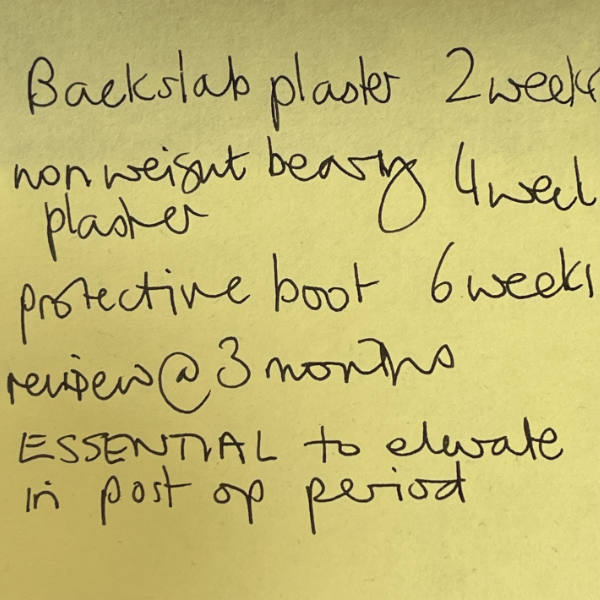 Backslab plaster 2 weeks
non weight bearing 4 week
plaster
protective boot 6 weeks
review @ 3 months
ESSENTIAL to elevate
in post op period